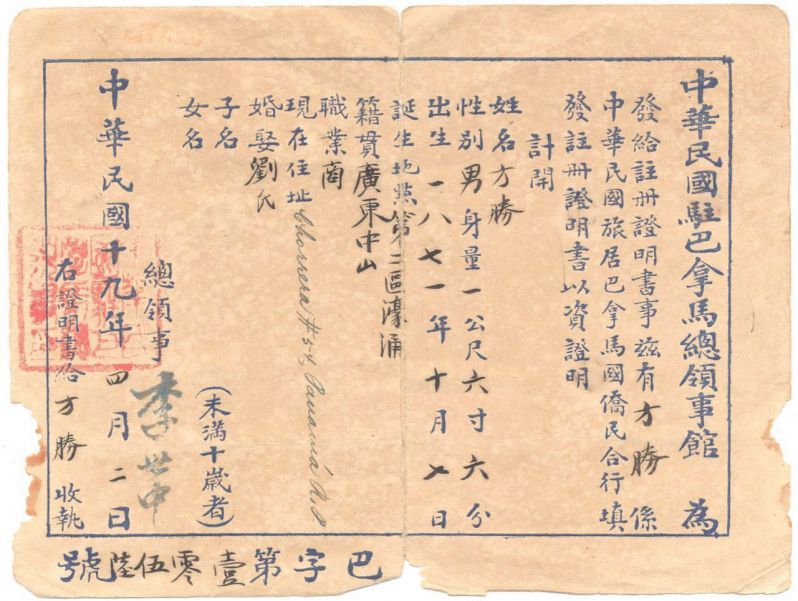 中華民國駐巴拿馬總領事館 為
發給註冊證明書事茲有方勝係
中華民國旅居巴拿馬國僑民合行填
發註冊證明書以資證明
計開
姓名方勝
性別男身量一公尺六寸六分
出生一八七一年十月七日
誕生地點第二區濠涌
籍貫廣東中山
職業商
現在住址Charrera #54, Panamá R.P
婚娶劉氏
子名
女名
(未滿十歲者)
總領事 李世中
中華民國十九年四月二日
右證明書給方勝收執
巴字第壹零伍陸號